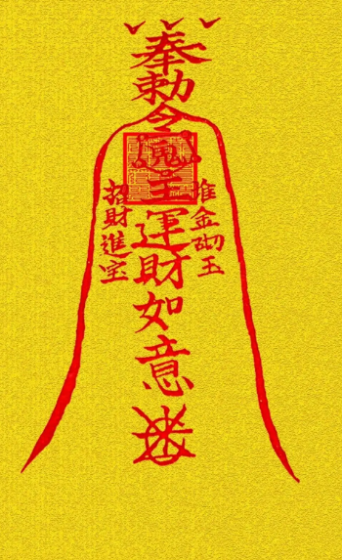 奉
勅
令
主
運
財
如
意
堆金砌玉
招財進宝